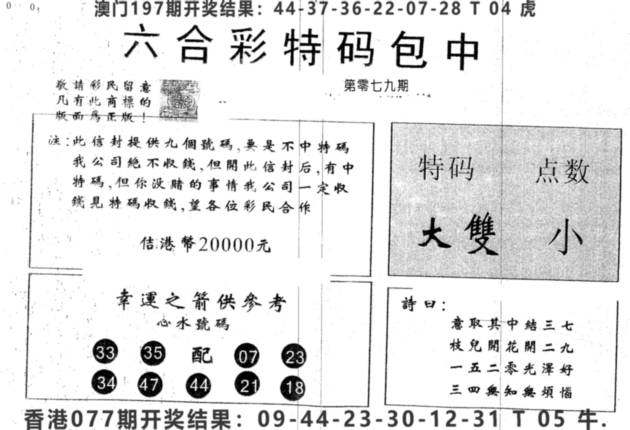 澳门197期开奖结果：44-37-36-22-07-28 T 04 虎
六合彩特码包中
第零七九期
敬請彩民留意
凡有此商標的
版面為正版！
注：此信封提供九個號碼，要是不中特碼
我公司絶不收錢，但開此信封后，有中
特碼，但你没賭的事情我公司一定收
錢見特碼收錢，望各位彩民合作
佶港幣20000元
特码 点数
大雙 小
幸運之箭供參考
心水號碼
33 35 配 07 23
34 47 44 21 18
詩曰：
意取其中結三七
枝兒開花開二九
一五二零光澤好
三四與知與煩惱
香港077期开奖结果：09-44-23-30-12-31 T 05 牛.